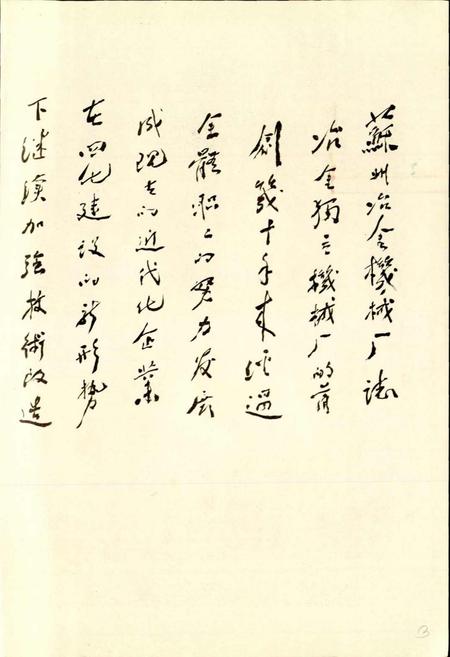 蘇州冶金機械厂誌
冶金獨立機械厂的前
創幾十年来經過
全體職工的努力发展
成现在的近代化企業
在四化建设的新形勢
下继續加強技術改造